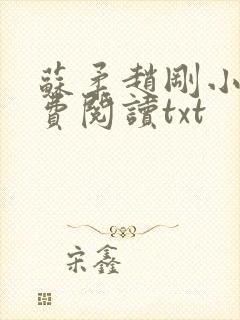 蘇矛趙剛小
費閱讀txt
宋鑫